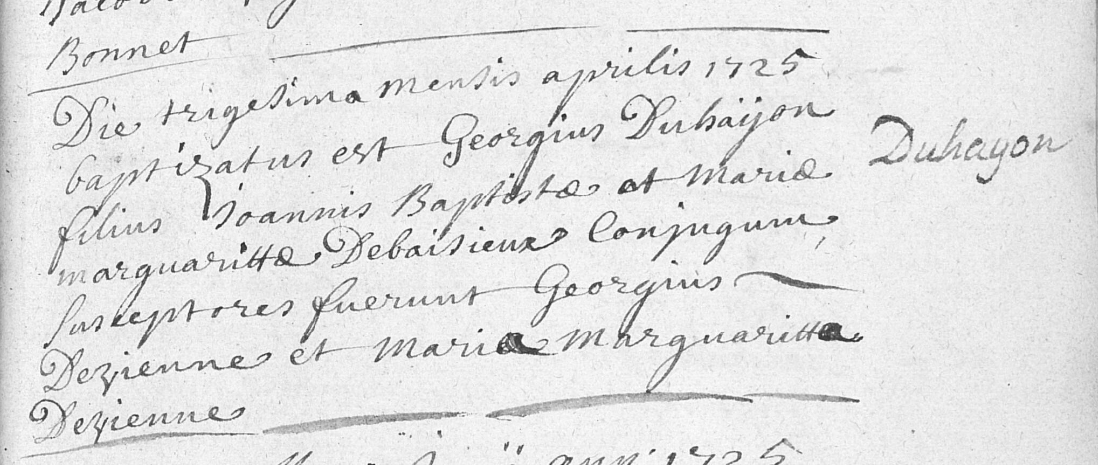 Bonnet
Die trigesima mensis aprilis 1725
baptizatus est Georgius Duhaÿon
Duhayon
filius Joannis Baptistæ et mariæ
marguarittæ Debaisieux Conjugum,
susceptores fuerunt Georgius
Dezienne et maria marguaritta
Dezienne
anni 1725